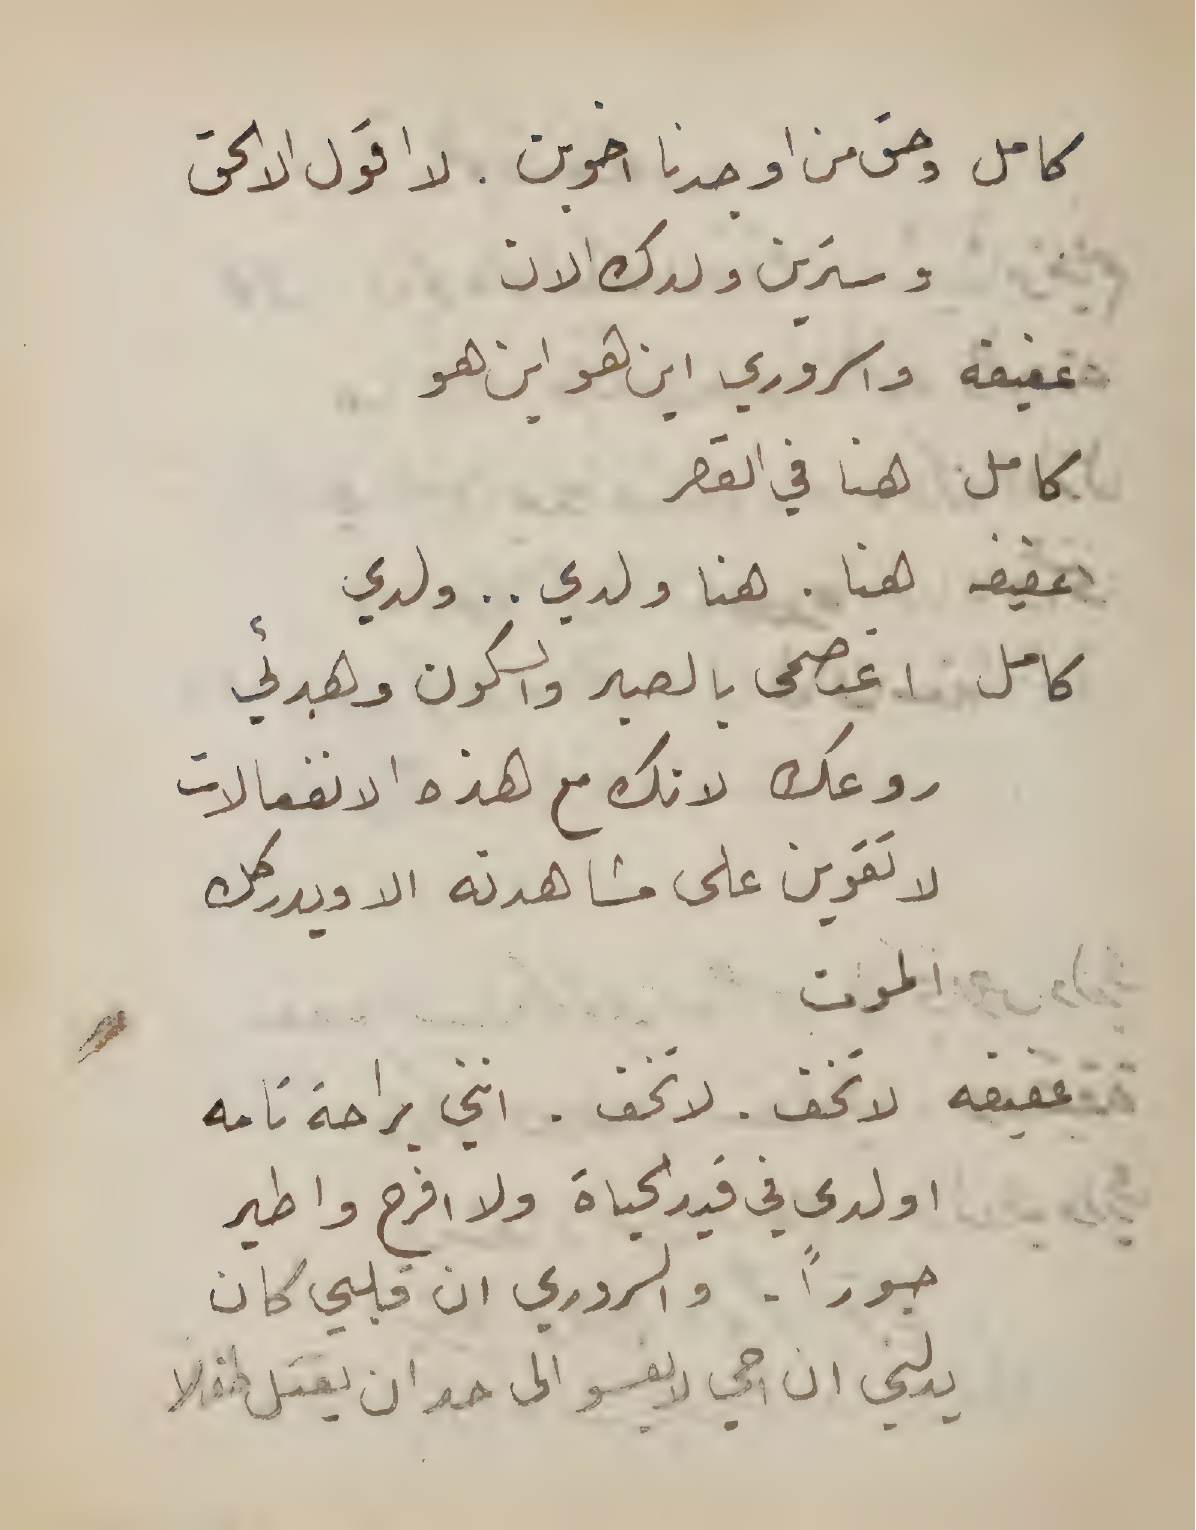 كامل وحق من اوجدنا اخوين . لا اقول الا الحق
وسترين ولدك الان
عفيفة واسروري اين هو اين هو
كامل هنا في القصر
عفيفه هنا . هنا ولدي .. ولدي
كامل اعتصمي بالصبر والسكون وهدئي
روعك لانك مع هذه الانفعالات
لا تقوين على مشاهدته الا ويدركك
الموت
عفيفه لا تخف . لا تخف . انني براحة تامه
اولدي في قيد الحياة ولا افرح واطير
حبوراً . واسروري ان قلبي كان
يدلني ان اخي لا يقسو الى حد ان يقتل طفلا